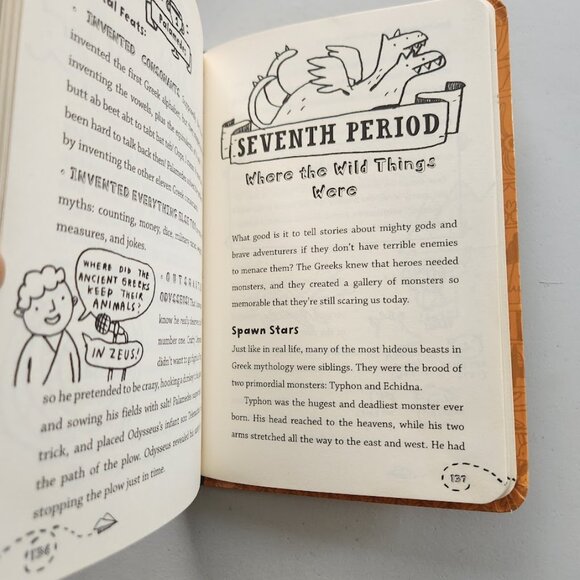 Palamedes
al Feats:
• INVENTED CONSONANTS.
invented the first Greek alphabet, but
inventing the vowels, plus the
butt ab beet abt to tabt bat tab!
been hard to talk back then! Palamedes
by inventing the other eleven Greek
• INVENTED EVERYTHING ELSE TOO
myths: counting, money, dice, military
measures, and jokes.
WHERE DID THE
ANCIENT GREEKS
KEEP THEIR
ANIMALS?
IN ZEUS!
• OUTSMARTED
ODYSSEUS!
know he really
number one. Crazy
didn't want to go
so he pretended to be crazy, hooking a donkey
and sowing his fields with salt! Palamedes
trick, and placed Odysseus's infant son
the path of the plow. Odysseus revealed
stopping the plow just in time.
136
SEVENTH PERIOD
Where the Wild Things
Were
What good is it to tell stories about mighty gods and
brave adventurers if they don't have terrible enemies
to menace them? The Greeks knew that heroes needed
monsters, and they created a gallery of monsters so
memorable that they're still scaring us today.
Spawn Stars
Just like in real life, many of the most hideous beasts in
Greek mythology were siblings. They were the brood of
two primordial monsters: Typhon and Echidna.
Typhon was the hugest and deadliest monster ever
born. His head reached to the heavens, while his two
arms stretched all the way to the east and west. He had
137